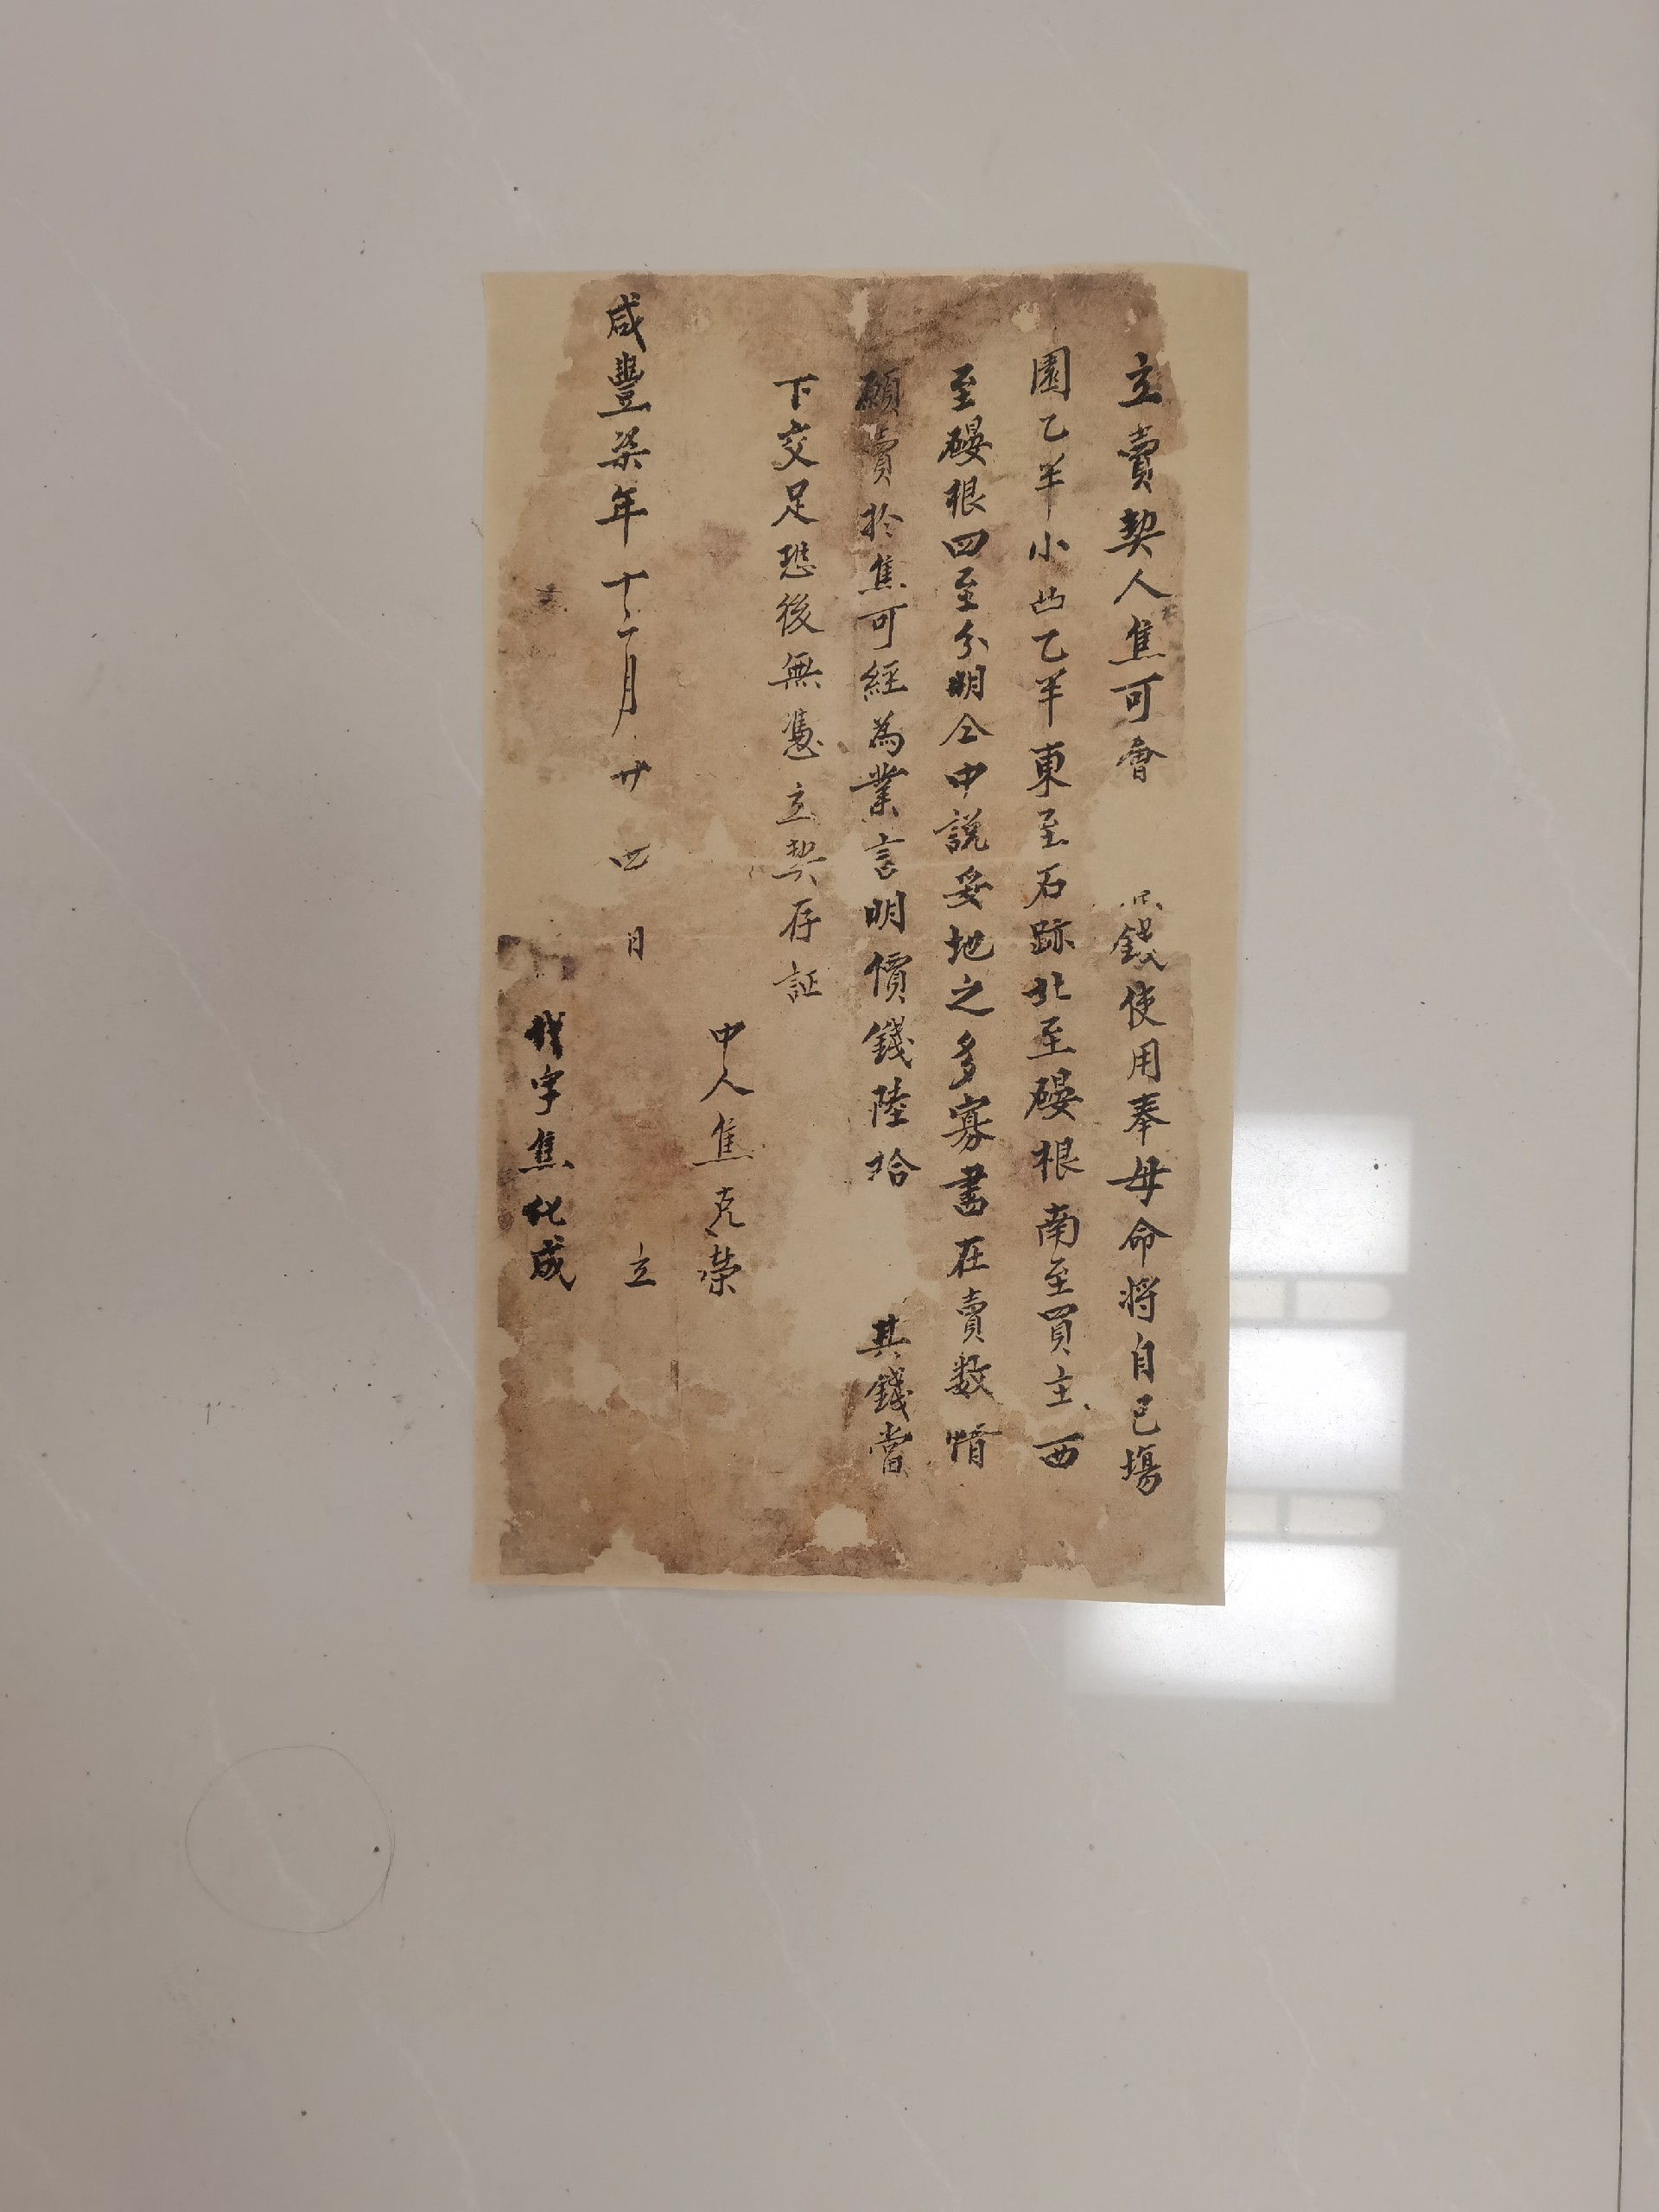 立賣契人焦可會錢使用奉母命將自己塲
園乙羊小凹乙羊東至石跡北至磤根南至買主西
至磤根四至分明仝中說妥地之多寡書在賣数情
願賣於焦可經為業言明價錢陸拾其錢當
下交足恐後無憑立契存証
中人焦克榮
咸豐柒年十二月廿四日立
代字焦化成